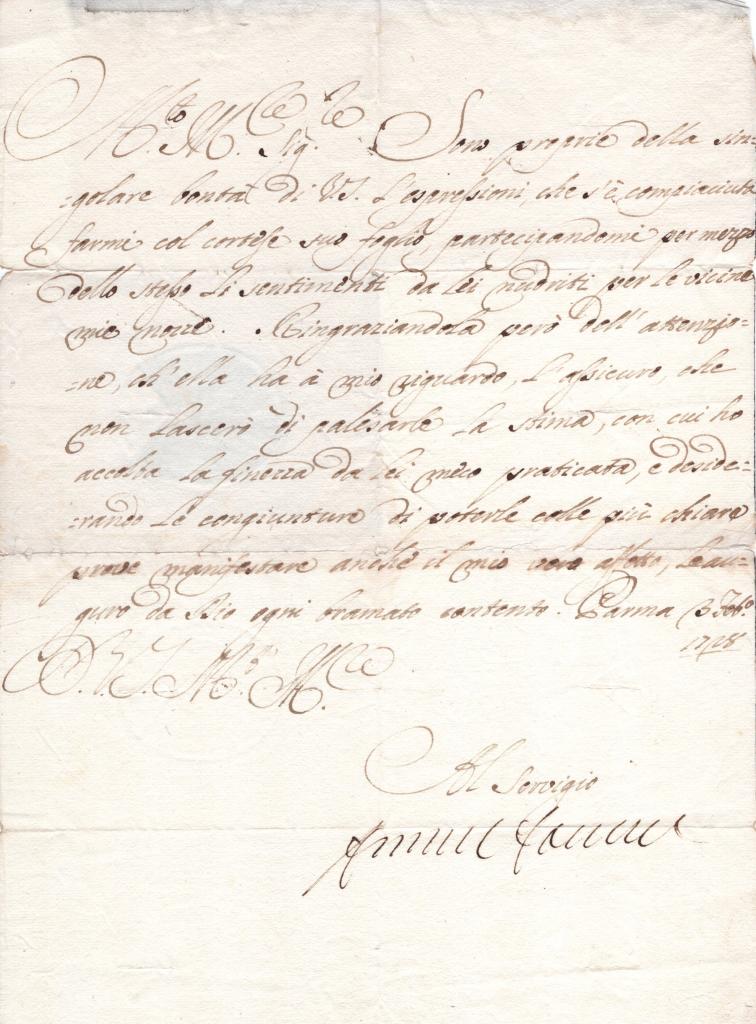 M.to M.ce Sig.re Sono proprie della sin=
=golare bontà di V.S. l'espressioni, che s'è compiaciuta
farmi col cortese suo foglio, partecipandomi per mezzo
dello stesso li sentimenti da Lei nudriti per le vicine
mie nozze. Ringraziandola però dell'attenzio=
=ne, ch'ella ha à mio riguardo, l'assicuro, che
non lascerò di palesarle la stima, con cui ho
accolta la finezza da Lei meco praticata, e deside=
=rando le congiunture di poterle colle più chiare
prove manifestare anche il mio vero affetto, le au=
guro da Dio ogni bramato contento. Parma 13 Feb.o
1728
D. V.S. M.to M.ce
Al Servigio